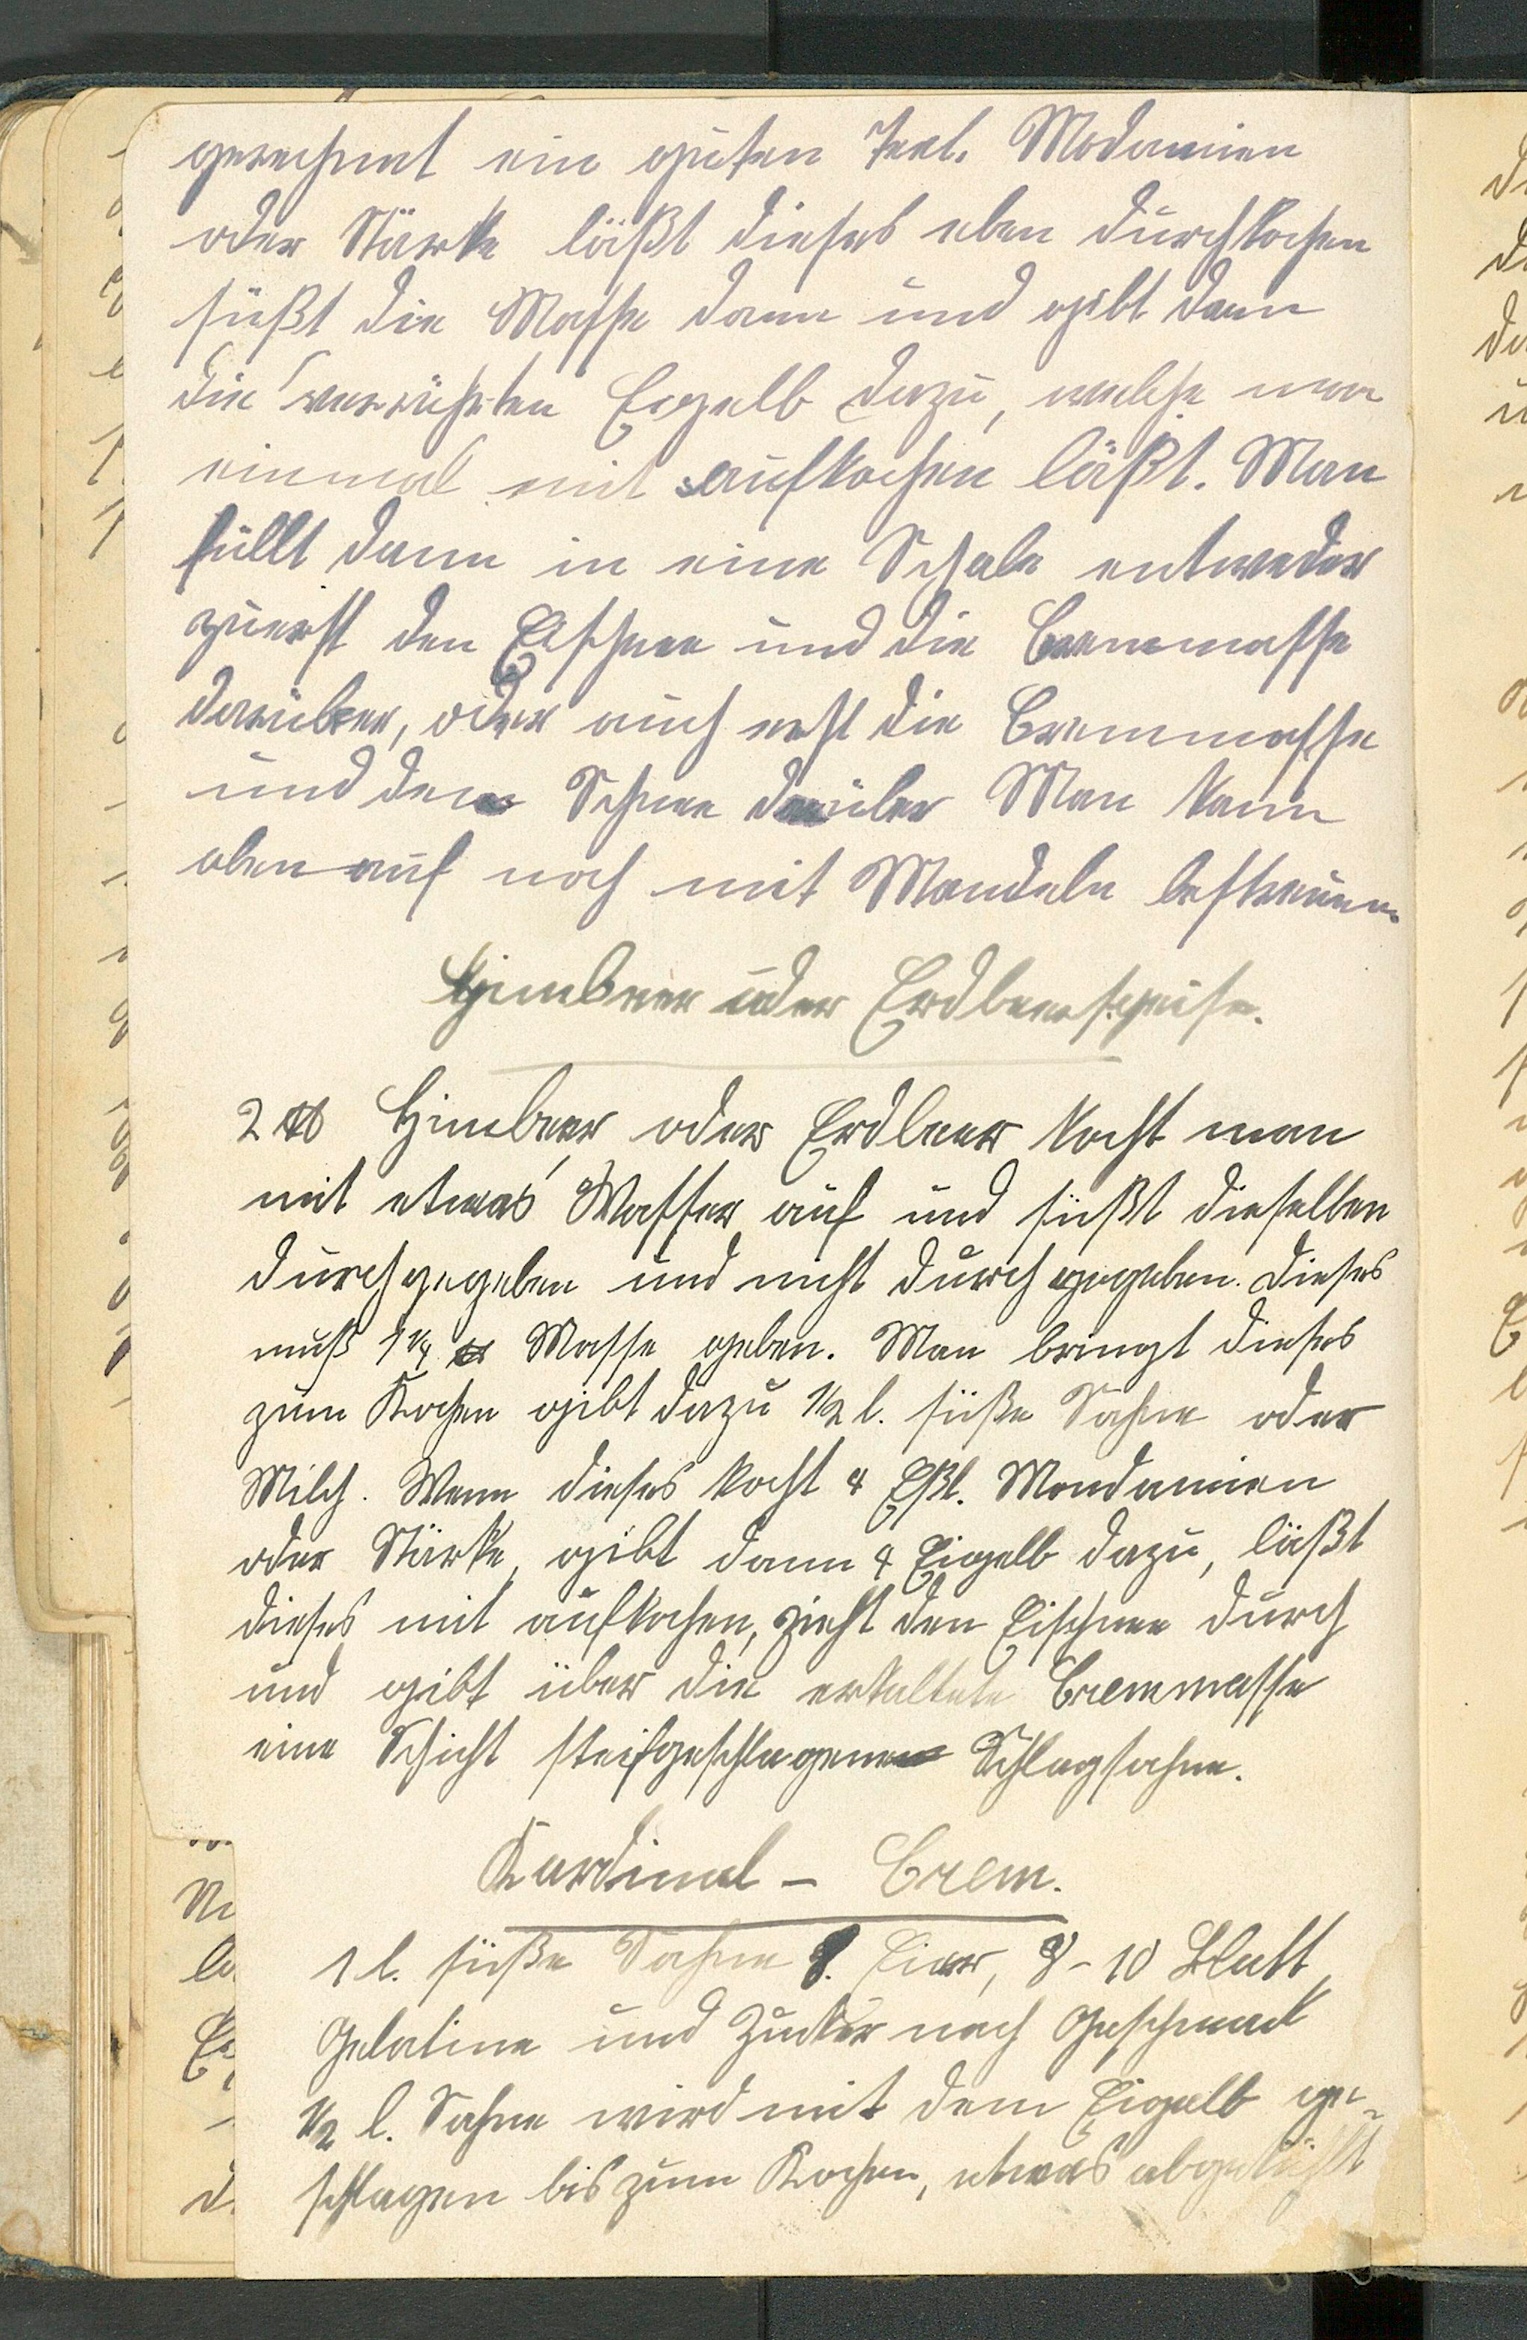 gerechnet ein guten Teel. Modamien
oder Stärke läßt dieses eben durchkochen
süßt die Masse dann und gibt dann
die verrührten Eigelb dazu, welche man
einmal mit aufkochen läßt. Man
füllt dann in eine Schale entweder
zuerst den Eischnee und die Cremmasse
darüber, oder auch erst die Cremmasse
und den Schnee darüber Man kann
oben auf noch mit Mandeln bestreuen.
Himbeer oder Erdbeerspeise.
2 ℔ Himbeer oder Erdbeer kocht man
mit etwas Wasser auf und süßt dieselben
durchgegeben und nicht durch gegeben. Dieses
muß 1¼ ℔ Masse geben. Man bringt dieses
zum Kochen gibt dazu 1½ l. süße Sahne oder
Milch. Wenn dieses kocht 4 Eßl. Mondamien
oder Stärke, gibt dann 4 Eigelb dazu, läßt
dieses mit aufkochen, zieht den Eischnee durch
und gibt über die erkaltete Cremmasse
eine Schicht steifgeschlagene Schlagsahne.
Kardinal - Crem.
1 l. süße Sahne 8. Eier, 8-10 Blatt
Gelatine und Zucker nach Geschmack
½ l. Sahne wird mit dem Eigelb ge-
schlagen bis zum Kochen, etwas abgekühlt